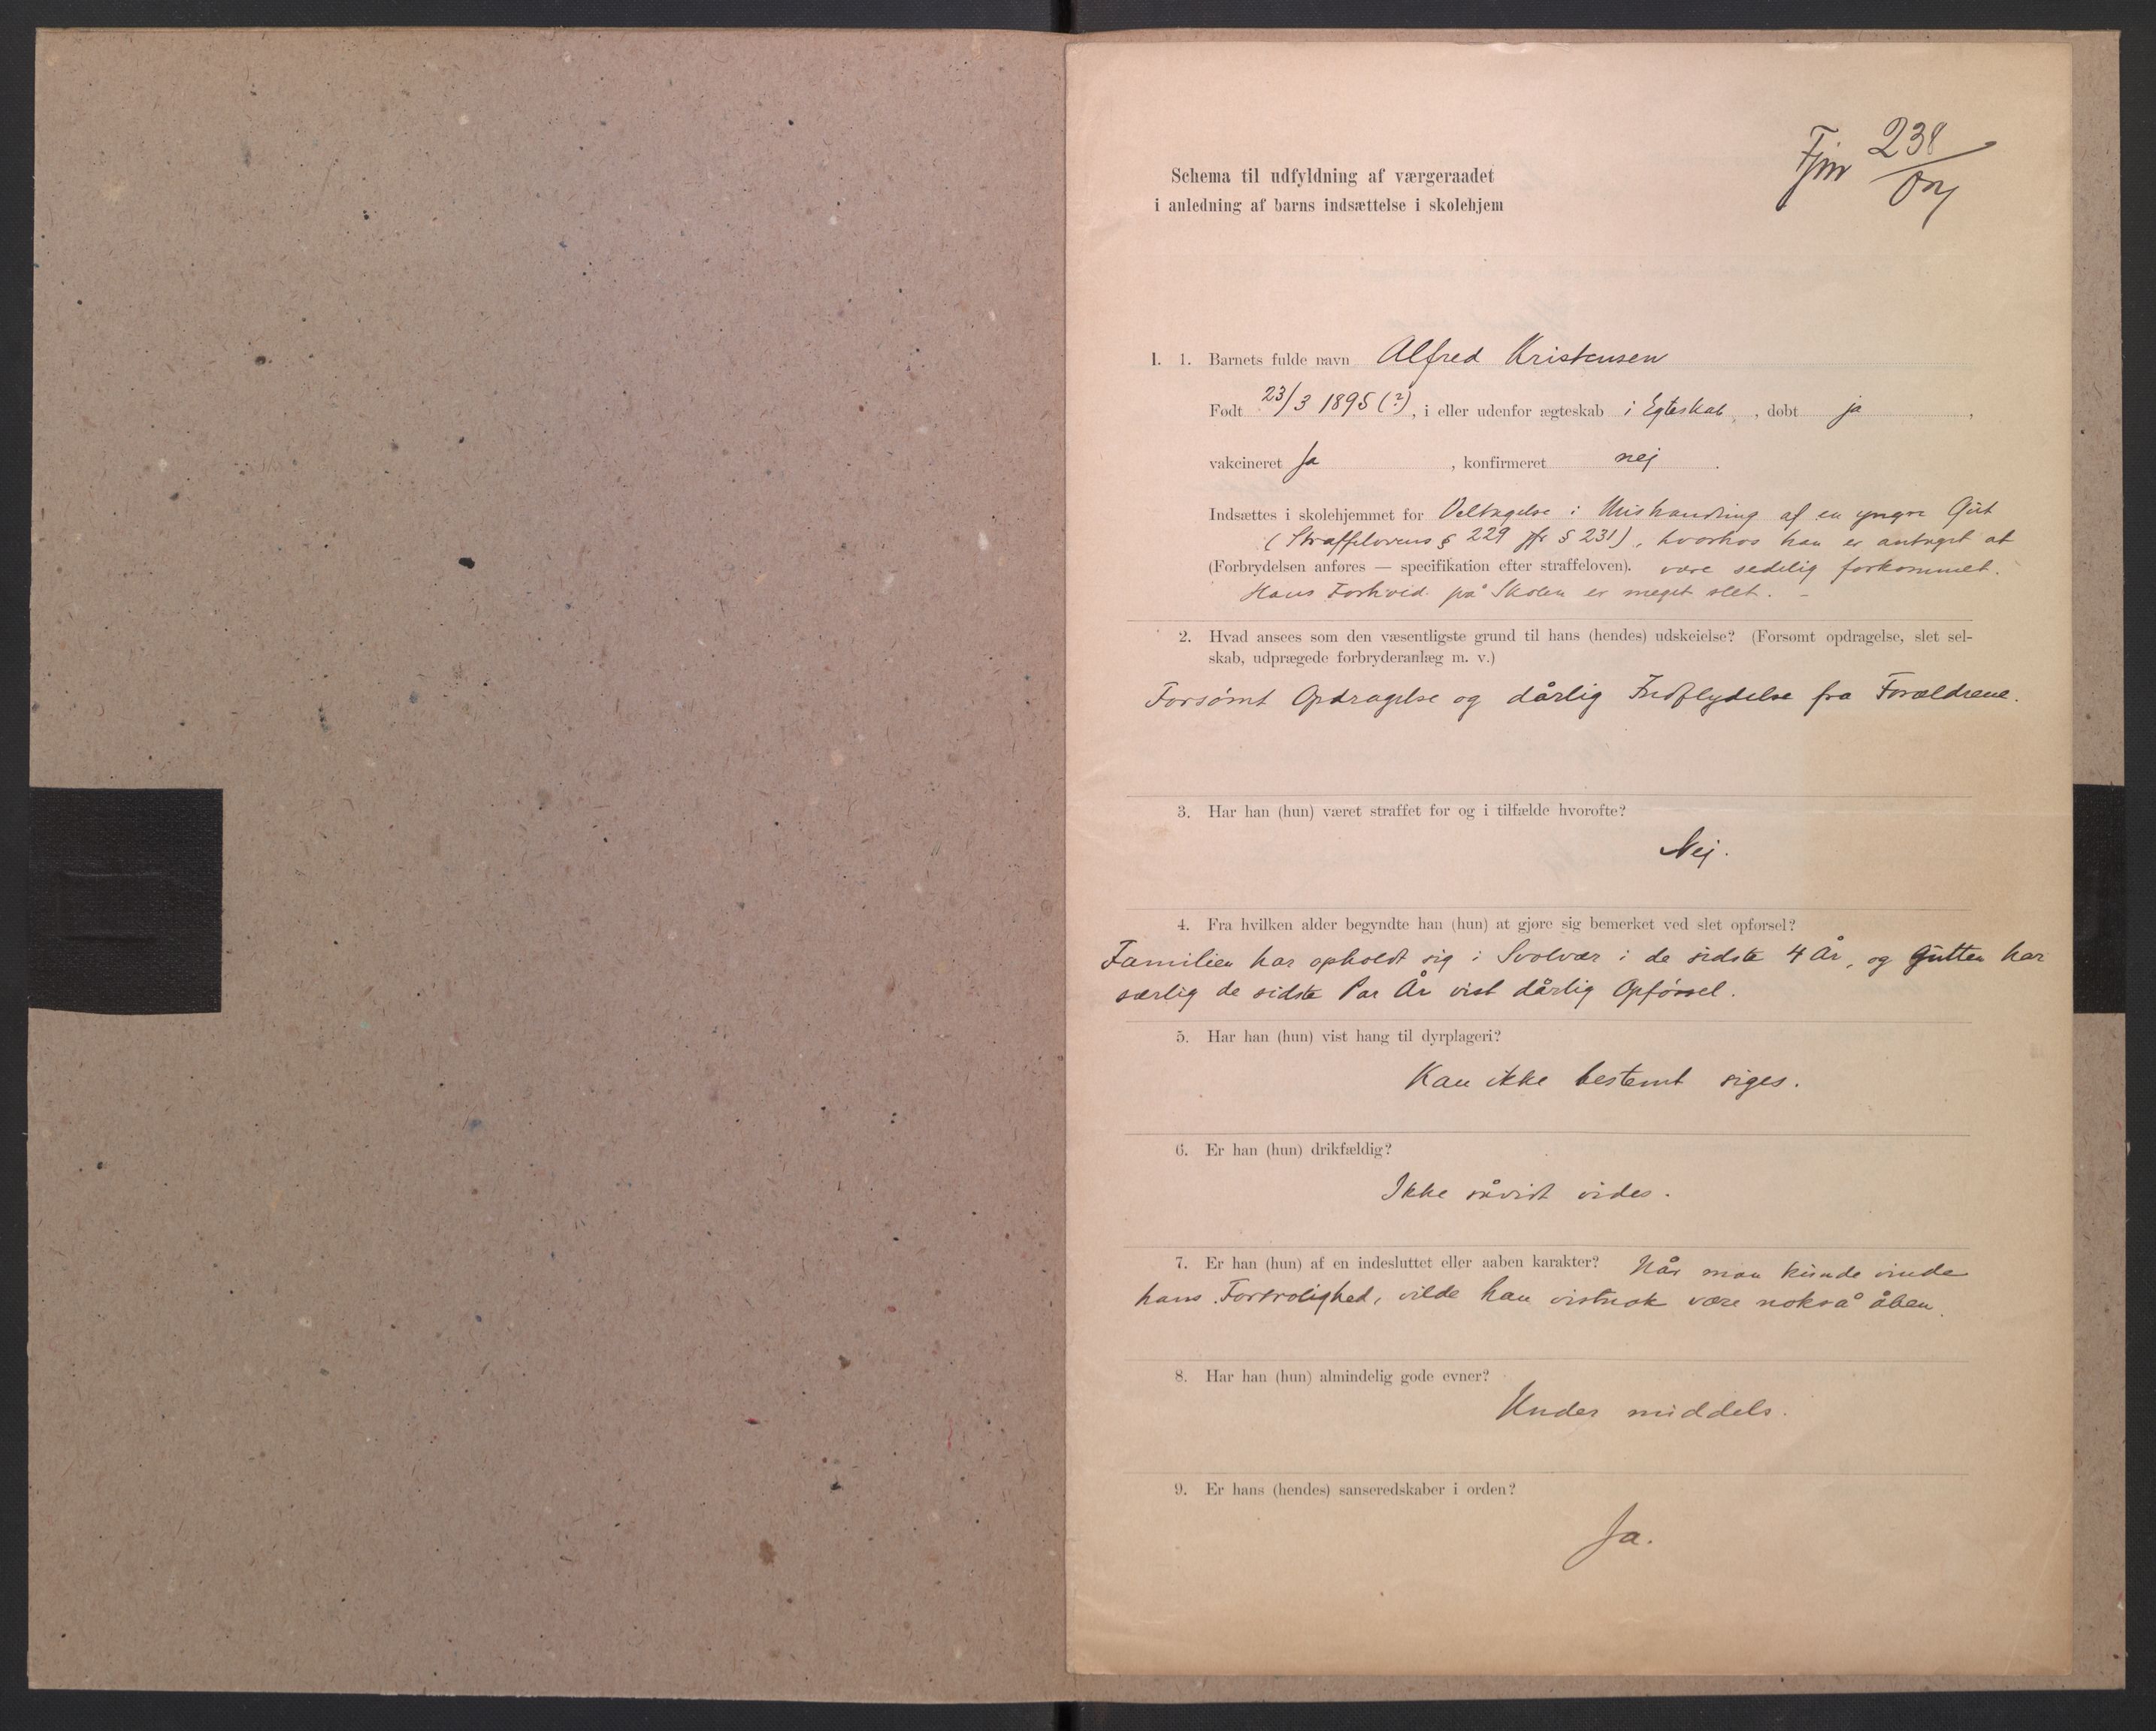 238
Schema til udfyldning af værgeraadet
i anledning af barns indsættelse i skolehjem
I. 1. Barnets fulde navn Alfred Kristensen
Født 23/3 1895 (?), i eller udenfor ægteskab i Egteskab, døbt ja,
vakcineret Ja, konfirmeret nej.
Indsættes i skolehjemmet for Deltagelse i Mishandling af en yngre Gut
(Straffelovens § 229 jfr § 231), hvorhos han er antaget at
(Forbrydelsen anføres — specifikation efter straffeloven). være sedelig forkommet.
Hans Forhold på Skolen er meget slet. -
2. Hvad ansees som den væsentligste grund til hans (hendes) udskeielse? (Forsømt opdragelse, slet sel-
skab, udprægede forbryderanlæg m. v.)
Forsømt Opdragelse og dårlig Indflydelse fra Forældrene.
3. Har han (hun) været straffet før og i tilfælde hvorofte?
Nej.
4. Fra hvilken alder begyndte han (hun) at gjøre sig bemerket ved slet opførsel?
Familien har opholdt sig i Svolvær i de sidste 4 År, og Gutten har
særlig de sidste Par År vist dårlig Opførsel.
5. Har han (hun) vist hang til dyrplageri?
Kan ikke bestemt siges.
6. Er han (hun) drikfældig?
Ikke såvidt vides.
7. Er han (hun) af en indesluttet eller aaben karakter? Når man kunde vinde
hans Fortrolighed, vilde han vistnok være nokså åben.
8. Har han (hun) almindelig gode evner?
Under middels.
9. Er hans (hendes) sanseredskaber i orden?
Ja.